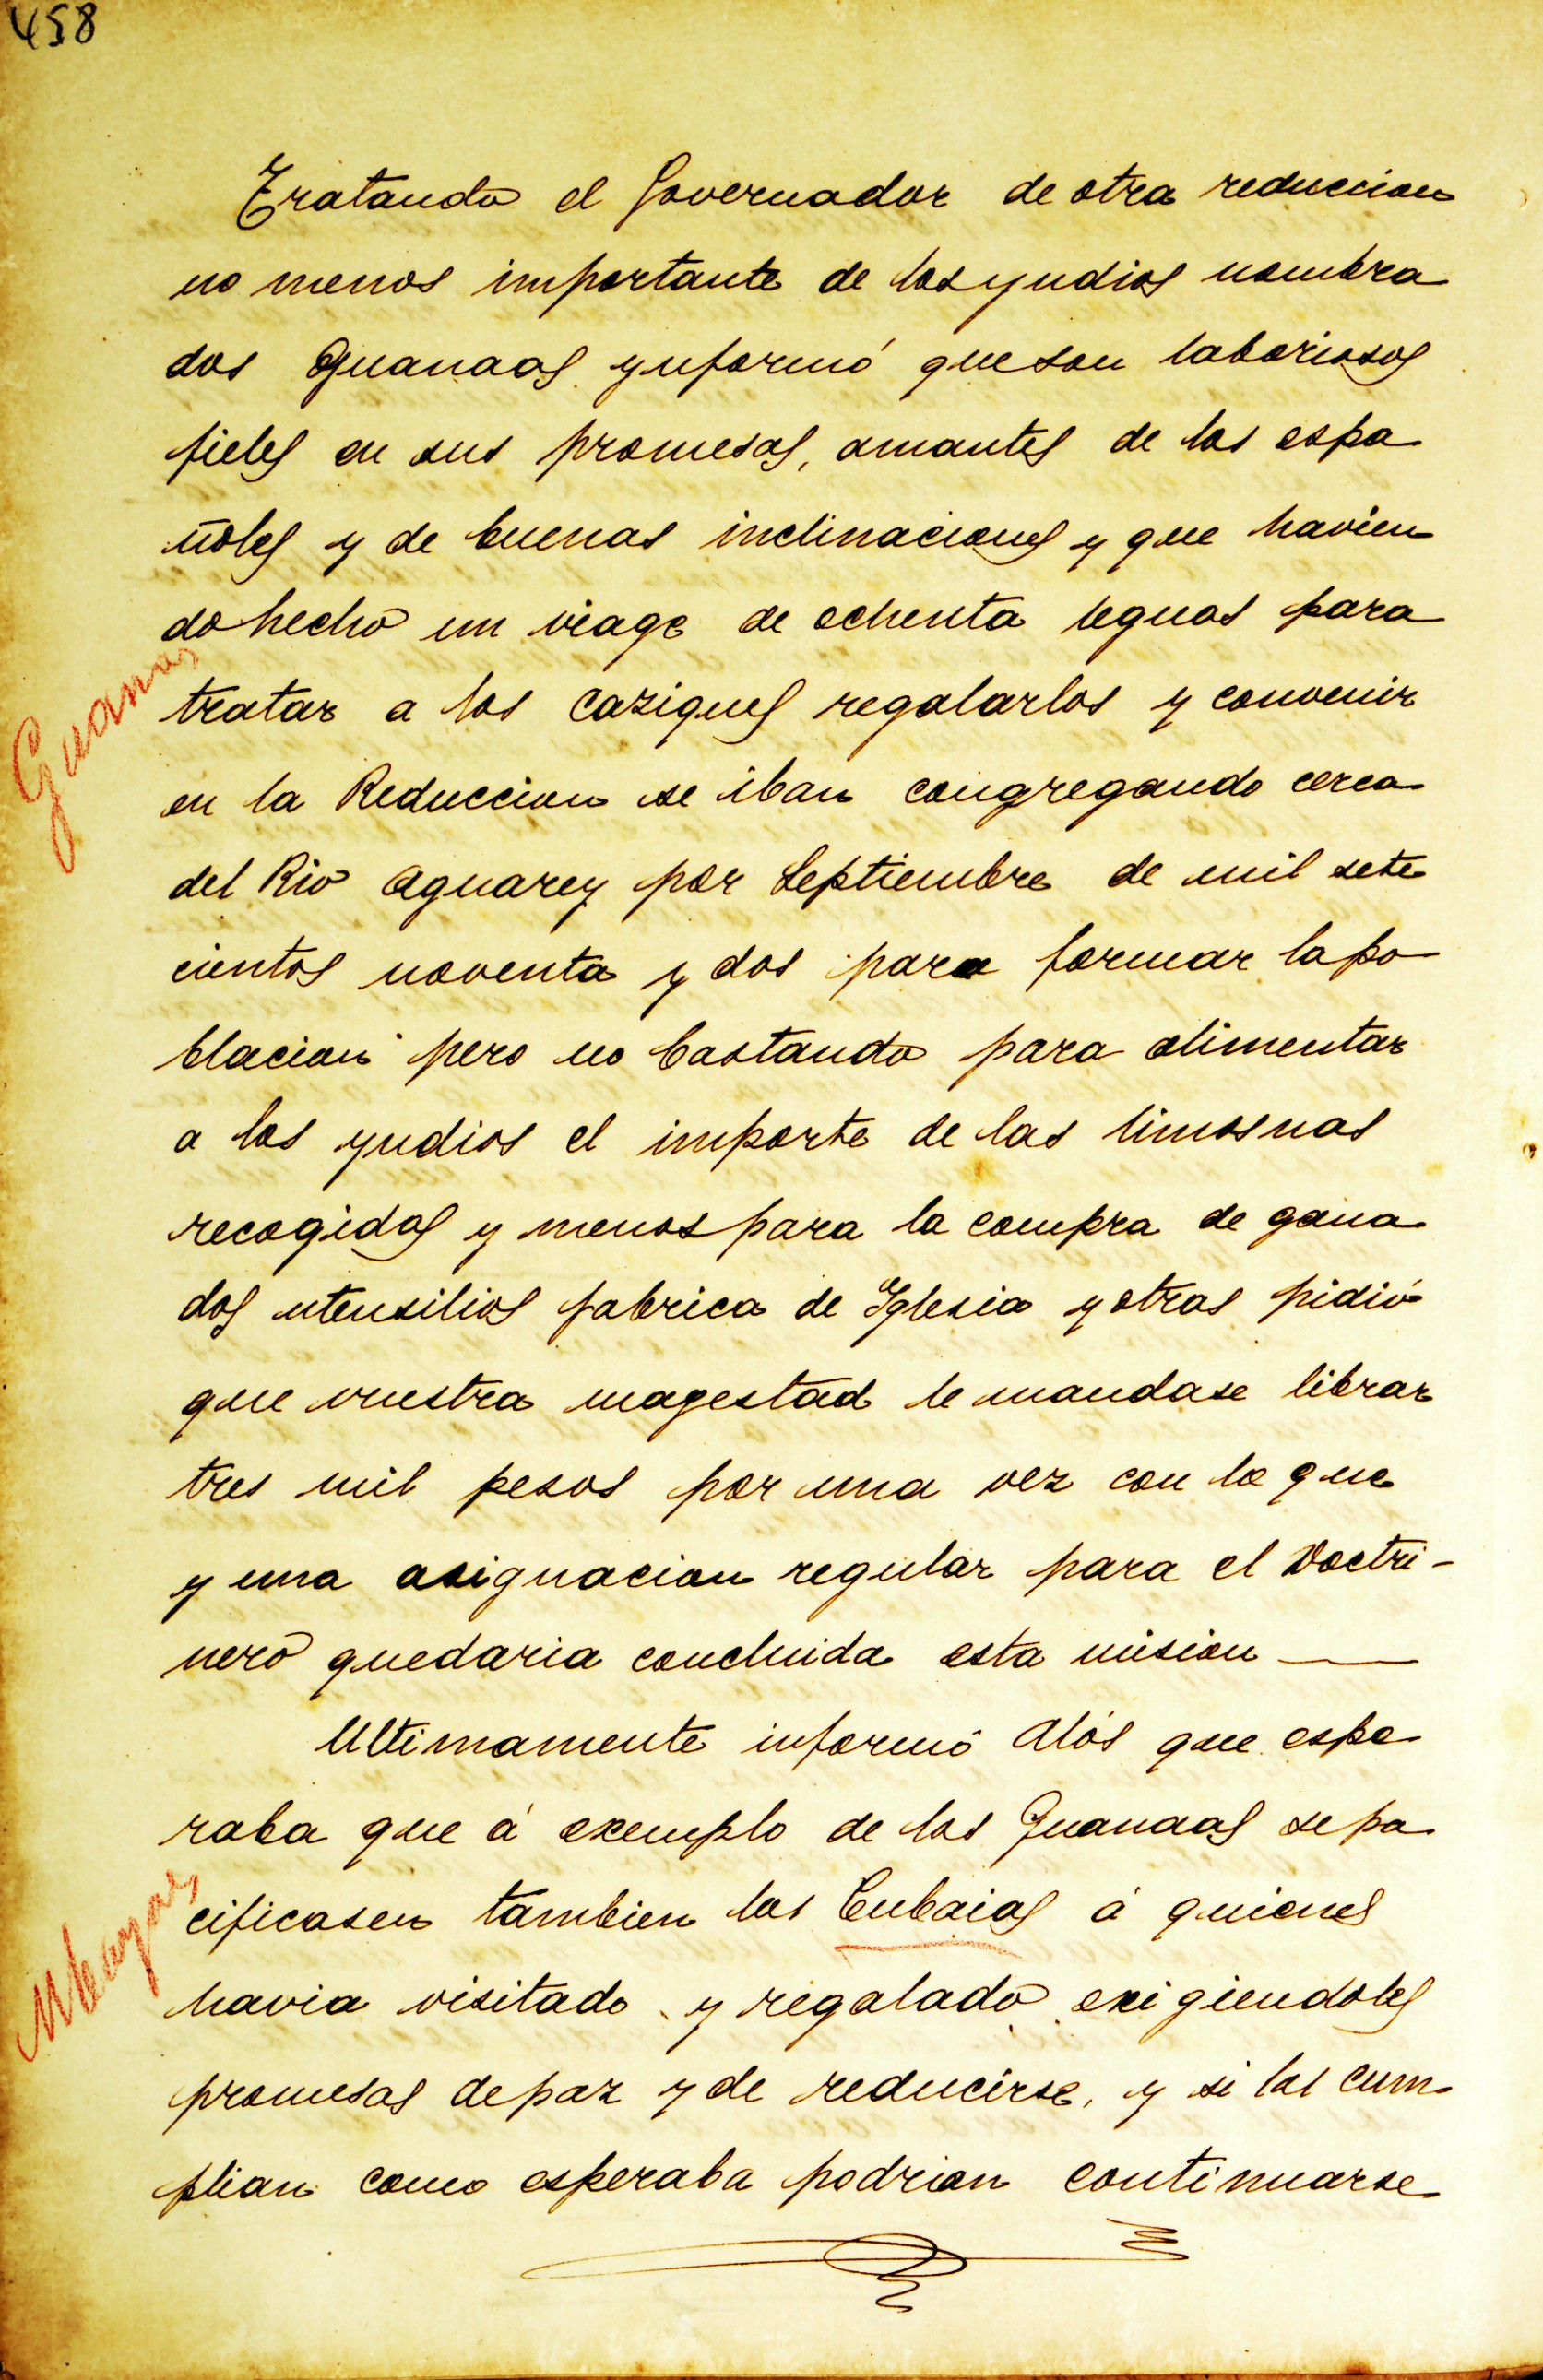 458
Tratando el Governador de otra reduccion
no menos importante de los yndios nombra
dos Guanaas ynformó que son laboriosos
fieles en sus promesas, amantes de los espa
ñoles y de buenas inclinaciones y que havien
do hecho un viage de ochenta leguas para
Guanas
tratar a los caziques regalarlos y convenir
en la Reduccion se iban congregando cerca
del Rio Aguarey por Septiembre de mil sete
cientos noventa y dos para formar la po
blacion pero no bastando para alimentar
a los yndios el importe de las limosnas
recogidas y menos para la compra de gana
dos utensilios fabrica de Yglesia y otras pidió
que vuestra magestad le mandase librar
tres mil pesos por una vez con lo que
y una asignacion regular para el Doctri-
nero quedaria concluida esta mision
Ultimamente informó Alós que espe
raba que á exemplo de los Guanaas se pa
cificasen tambien los Cubaias á quienes
Mbayas
havia visitado y regalado exigiendoles
promesas de paz y de reducirse, y si las cum
plian como esperaba podrian continuarse